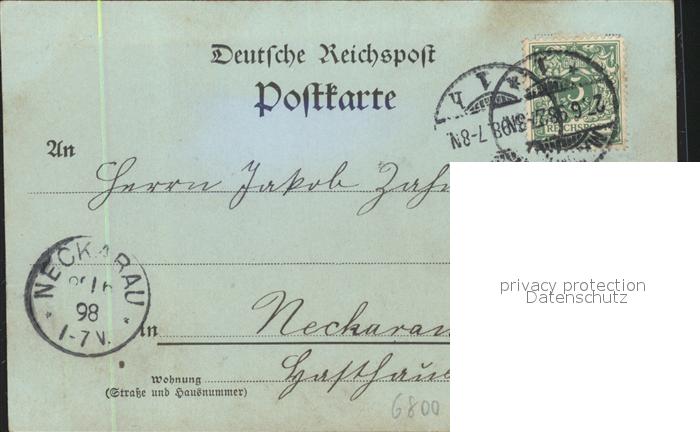 Deutsche Reichspost
Postkarte
5
REICHSPOST
7-8N.
An
Herrn Jakob Zah
privacy protection
Datenschutz
NECKARAU
98
1-7N.
in
Neckarau
Gasthaus
Wohnung
(Straße und Hausnummer)
6800